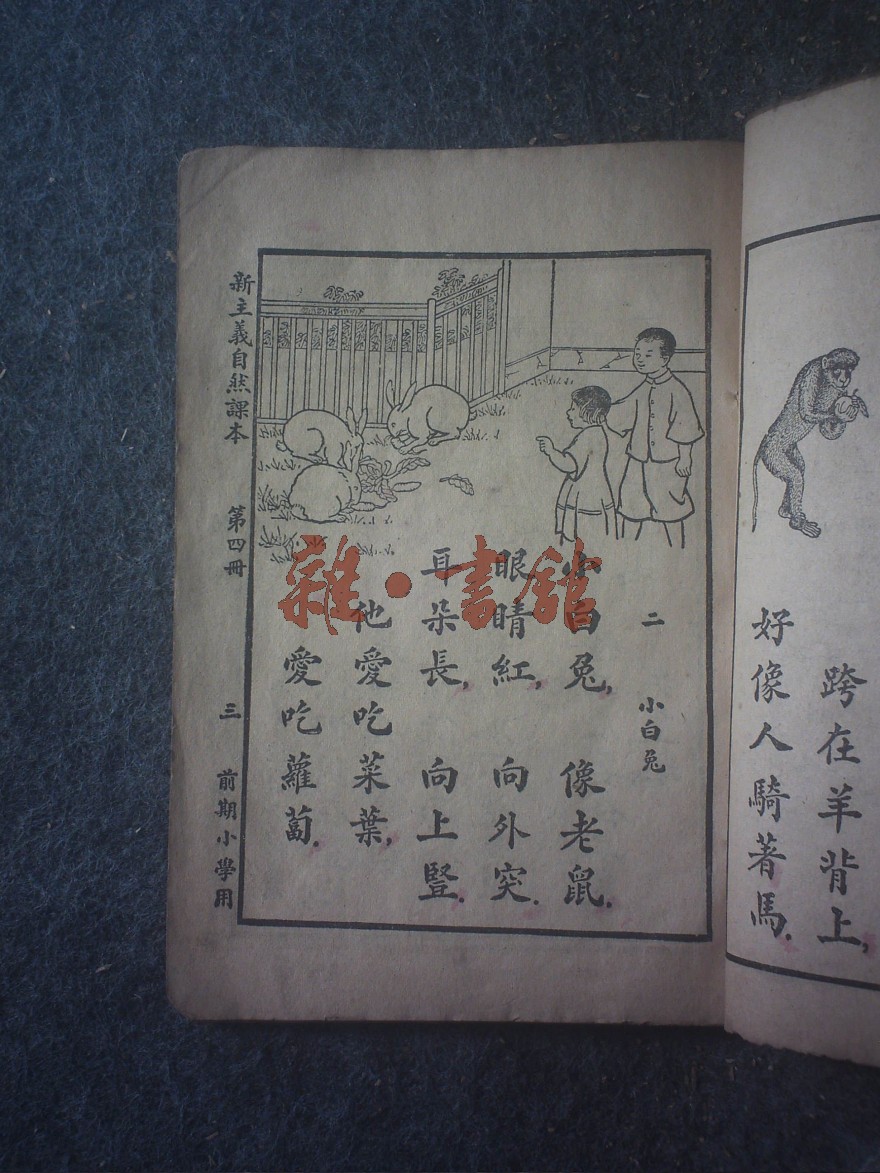 跨在羊背上，
好像人騎著馬．
二　小白兔
小白兔，　像老鼠．
眼睛紅，　向外突．
耳朵長，　向上豎．
他愛吃菜葉，
愛吃蘿蔔．
新主義自然課本　第四冊　三　前期小學用
雜·書館